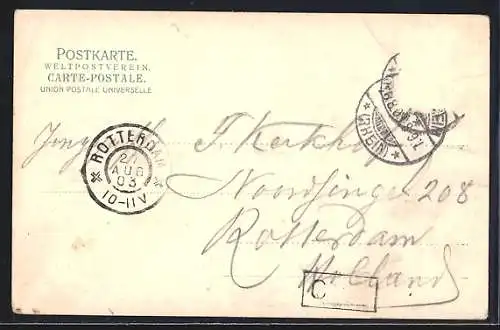 POSTKARTE.
WELTPOSTVEREIN.
CARTE-POSTALE.
UNION POSTALE UNIVERSELLE
ROTTERDAM
27
AUG
03
10-11V
(RHEIN)
Noordsingel 208
Rotterdam
Holland
C